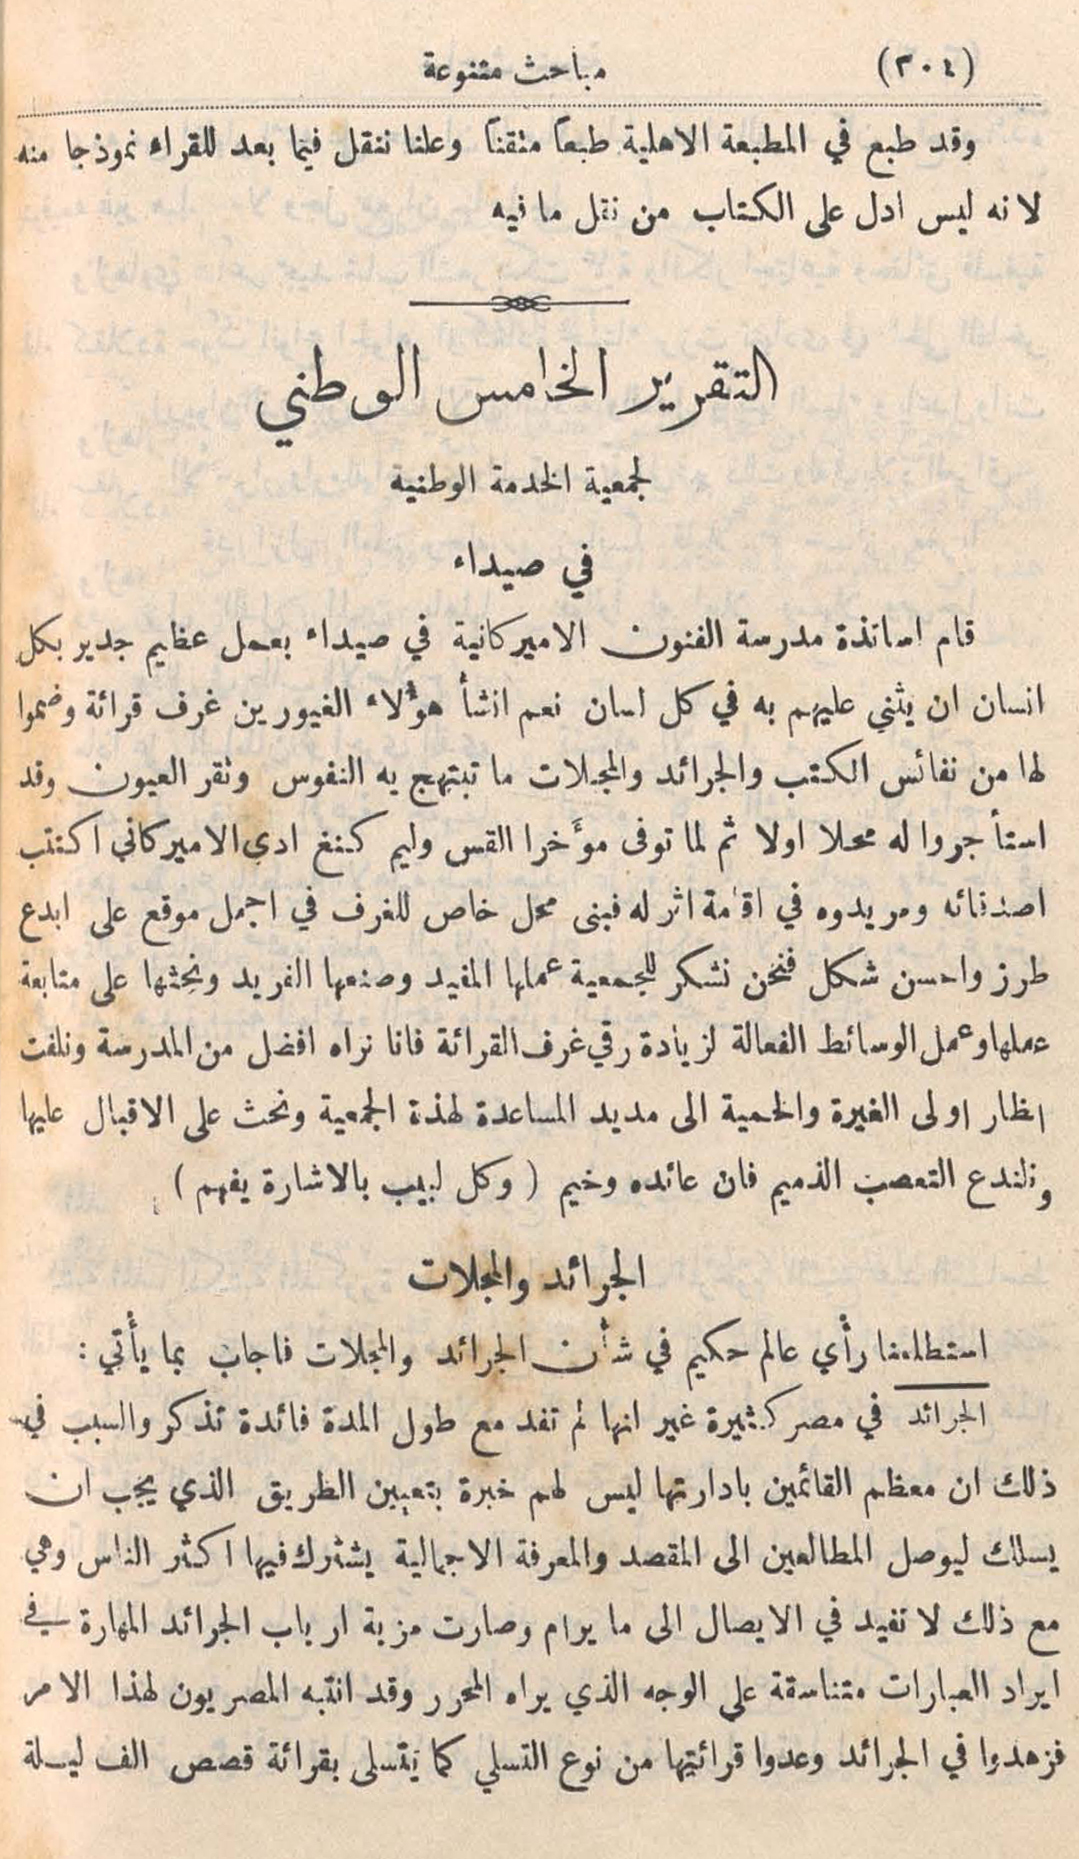 (٣٠٤) مباحث متنوعة
وقد طبع في المطبعة الاهلية طبعاً متقناً وعلنا ننقل فيما بعد للقراء نموذجا منه
لانه ليس ادل على الكتاب من نقل ما فيه
التقرير الخامس الوطني
لجمعية الخدمة الوطنية
في صيداء
قام اساتذة مدرسة الفنون الاميركانية في صيداء بعمل عظيم جدير بكل
انسان ان يثني عليهم به في كل لسان نعم انشأ هؤلاء الغيورين غرف قرائة وضموا
لها من نفائس الكتب والجرائد والمجلات ما تبتهج به النفوس وتقر العيون وقد
استأجروا له محلا اولا ثم لما توفى مؤخرا القس وليم كنغ ادي الاميركاني اكتتب
اصدقائه ومريدوه في اقامة اثر له فبنى محل خاص للغرف في اجمل موقع على ابدع
طرز واحسن شكل فنحن نشكر للجمعية عملها المفيد وصنعها الفريد ونحثها على متابعة
عملها وعمل الوسائط الفعالة لزيادة رقي غرف القرائة فانا نراه افضل من المدرسة ونلفت
انظار اولى الغيرة والحمية الى مديد المساعدة لهذة الجمعية ونحث على الاقبال عليها
ولندع التعصب الذميم فان عائده وخيم (وكل لبيب بالاشارة يفهم)
الجرائد والمجلات
استطلعنا رأي عالم حكيم في شأن الجرائد والمجلات فاجاب بما يأتي :
الجرائد في مصر كثيرة غير انها لم تفد مع طول المدة فائدة تذكر والسبب في
ذلك ان معظم القائمين بادارتها ليس لهم خبرة بتعيين الطريق الذي يجب ان
يسلك ليوصل المطالعين الى المقصد والمعرفة الاجمالية يشترك فيها اكثر الناس وهي
مع ذلك لا تفيد في الايصال الى ما يرام وصارت مزية ارباب الجرائد المهارة في
ايراد العبارات متناسقة على الوجه الذي يراه المحرر وقد انتبه المصريون لهذا الامر
فزهدوا في الجرائد وعدوا قرائتها من نوع التسلي كما يتسلى بقرائة قصص الف ليلة